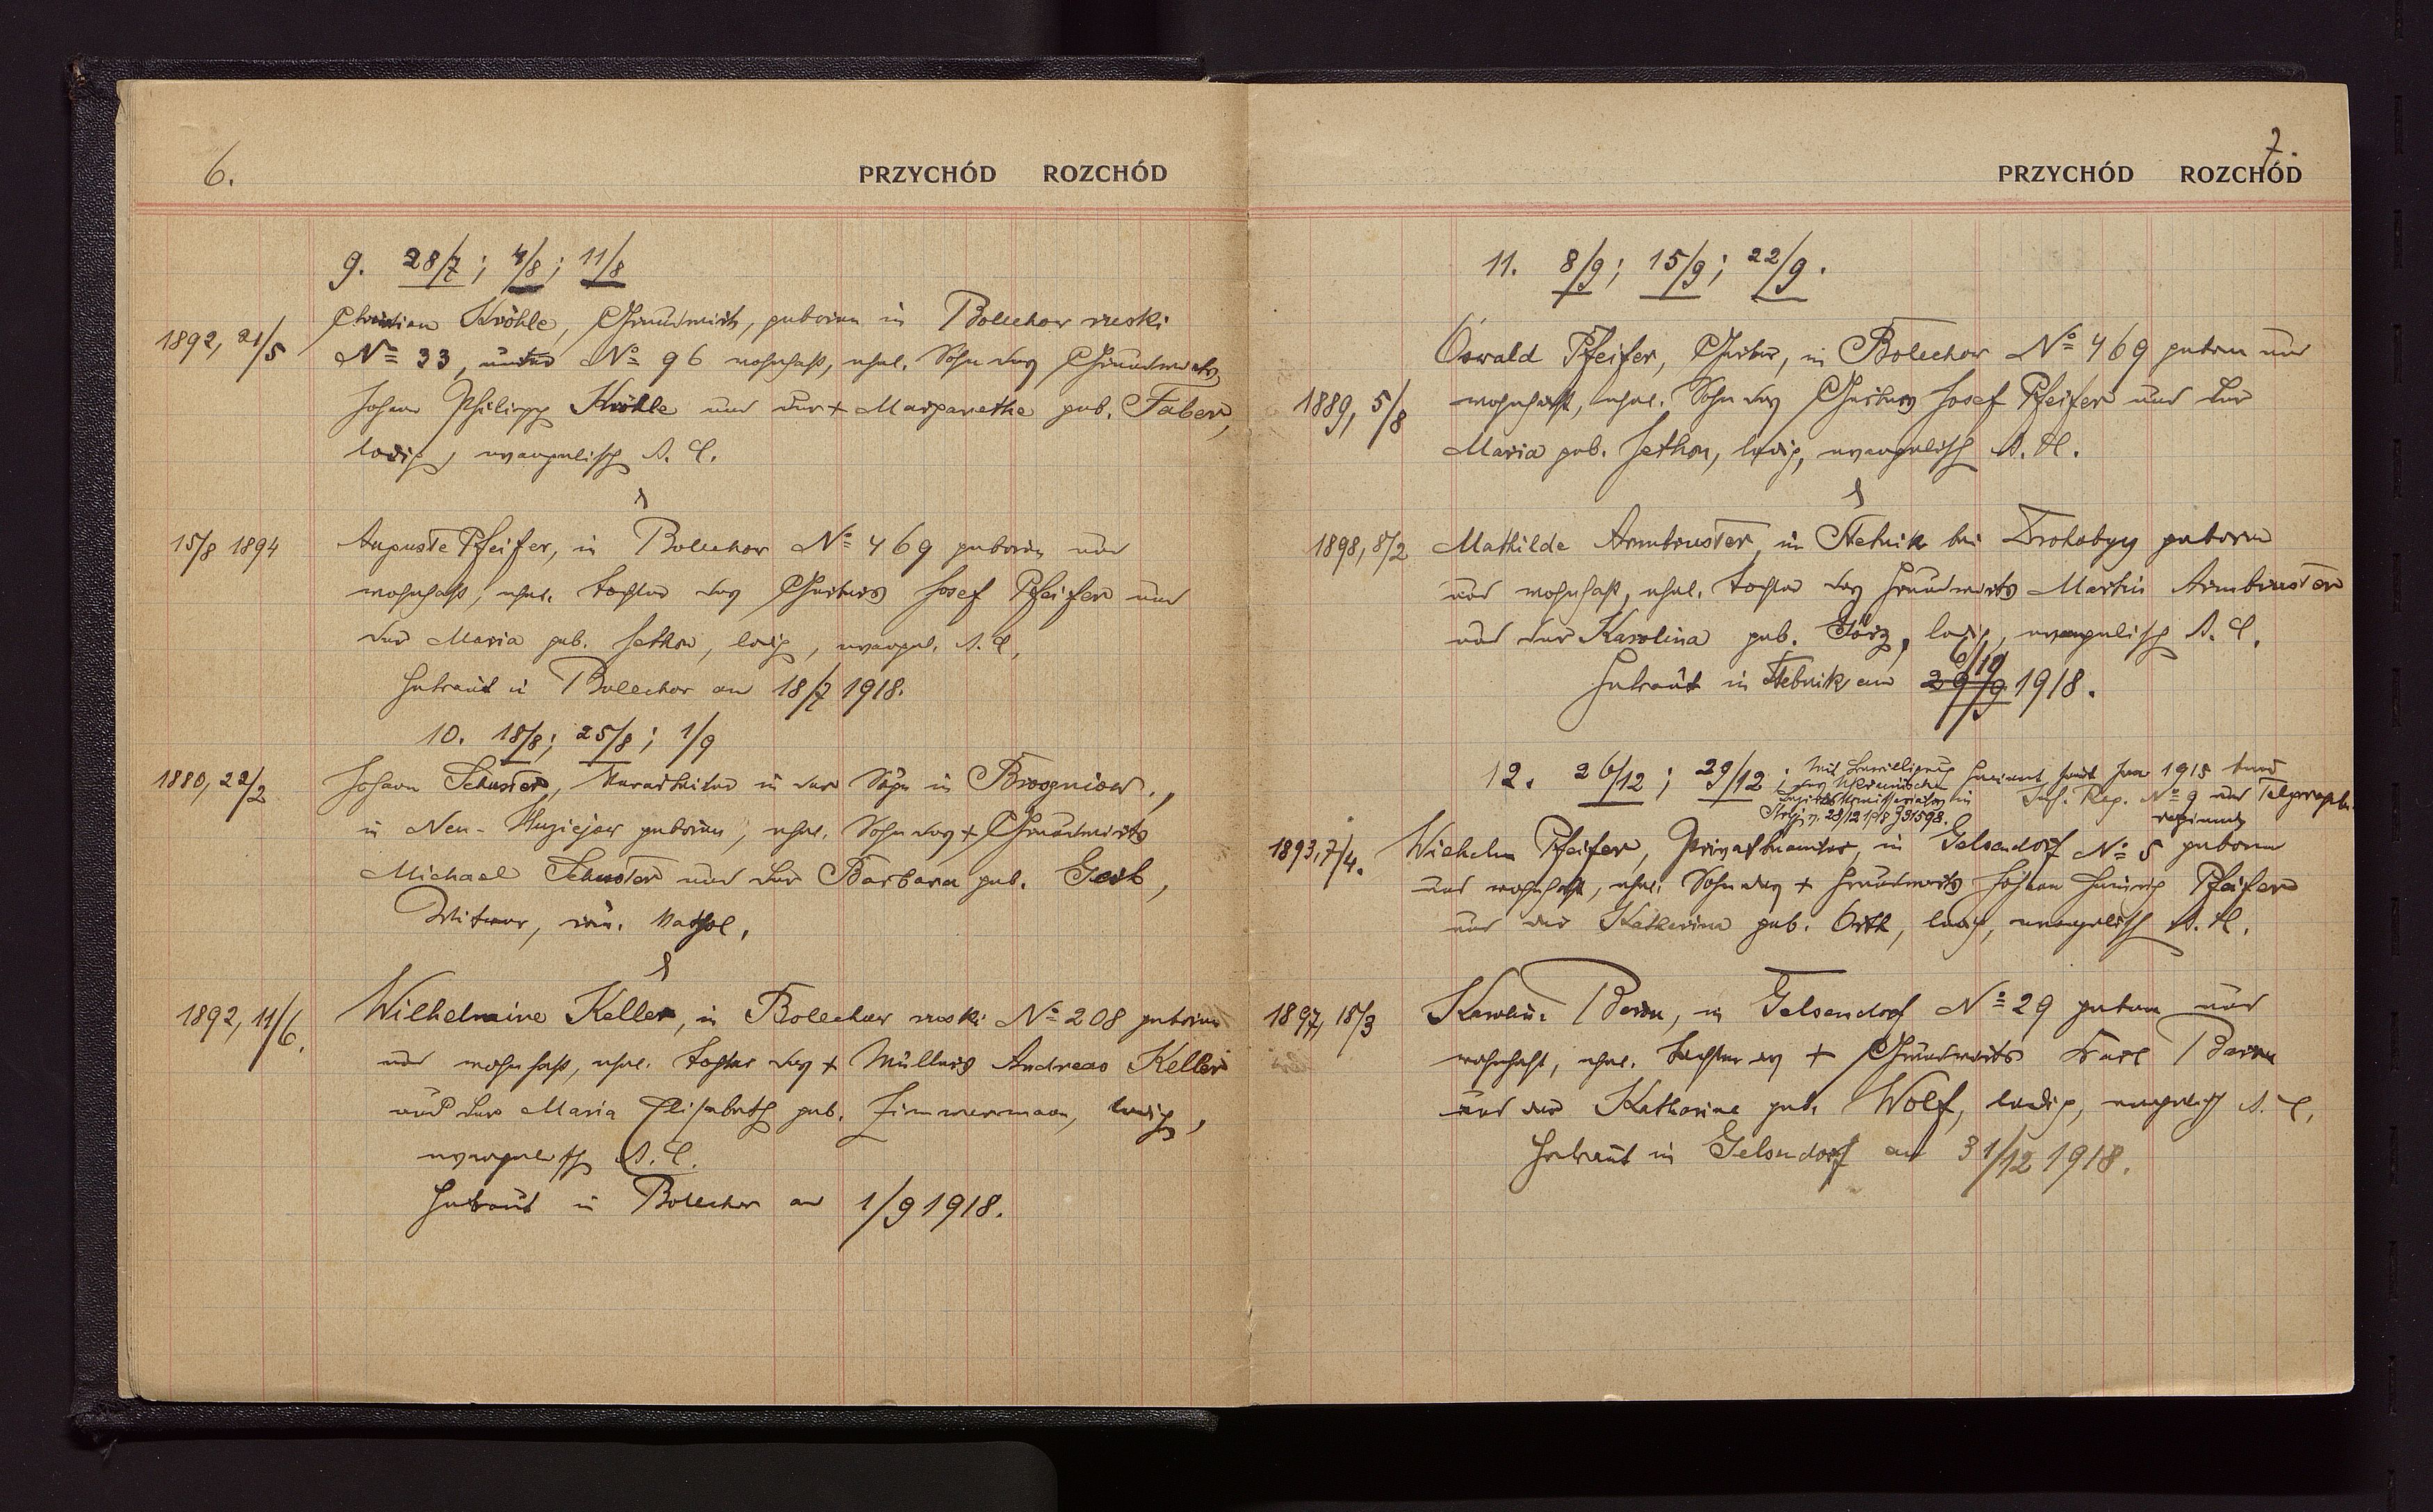 6.
PRZYCHÓD ROZCHÓD
9. 28/7; 4/8; 11/8
1892, 21/5
Christian Kröhle, Grundwirt, geboren in Bolechow ruski
No 33, unter No 96 wohnhaft, ehel. Sohn des Grundwirts
Johann Philipp Kröhle und der + Margarethe geb. Faber,
ledig, evangelisch A. C.
&
15/8 1894
Auguste Pfeifer, in Bolechow No 469 geboren und
wohnhaft, ehel. Tochter des Gerbers Josef Pfeifer und
der Maria geb. Jethon, ledig, evangel. A. C.
Getraut in Bolechow am 18/7 1918.
10. 18/8; 25/8; 1/9
1880, 22/2
Johann Schuster, Vorarbeiter in der Säge in Brosgniow.,
in Neu- geboren, ehel. Sohn des + Grundwirts
Michael Schuster und der Barbara geb.
Witwer, röm. kathol.
&
1892, 11/6.
Wilhelmine Keller, in Bolechow ruski No 208 geboren
und wohnhaft, ehel. Tochter des + Müllers Andreas Keller
und der Maria Elisabeth geb. Zimmermann, ledig,
evangelisch A. C.
Getraut in Bolechow am 1/9 1918.
7.
PRZYCHÓD ROZCHÓD
11. 8/9; 15/9; 22/9.
Oswald Pfeifer, Gerber, in Bolechow No 469 geboren und
1889, 5/8
wohnhaft, ehel. Sohn des Gerbers Josef Pfeifer und der
Maria geb. Jethon, ledig, evangelisch A. C.
&
1898, 8/2
Mathilde Armbruster, in Stebnik bei Drohobycz geboren
und wohnhaft, ehel. Tochter des Grundwirts Martin Armbruster
und der Karolina geb. Görz, ledig, evangelisch A. C.
6/10
Getraut in Stebnik am 29/9 1918.
12. 26/12; 29/12; Mit Bewilligung
des Ukrainischen
Bezirkskommissariates in
Stryj v. 28/12 1918 J31598.
1915
Inf. Reg. No 9 und Telegraphen
regiment
1893, 7/4.
Wilhelm Pfeifer, Privatbeamter, in Gelsendorf No 5 geboren
und wohnhaft, ehel. Sohn des + Grundwirts Johann Heinrich Pfeifer
und der Katharina geb. Orth, ledig, evangelisch A. C.
1897, 15/3
in Gelsendorf No 29 geboren und
wohnhaft, ehel. Tochter des + Grundwirts Karl
und der Katharina geb. Wolf, ledig, evangelisch A. C.
Getraut in Gelsendorf am 31/12 1918.